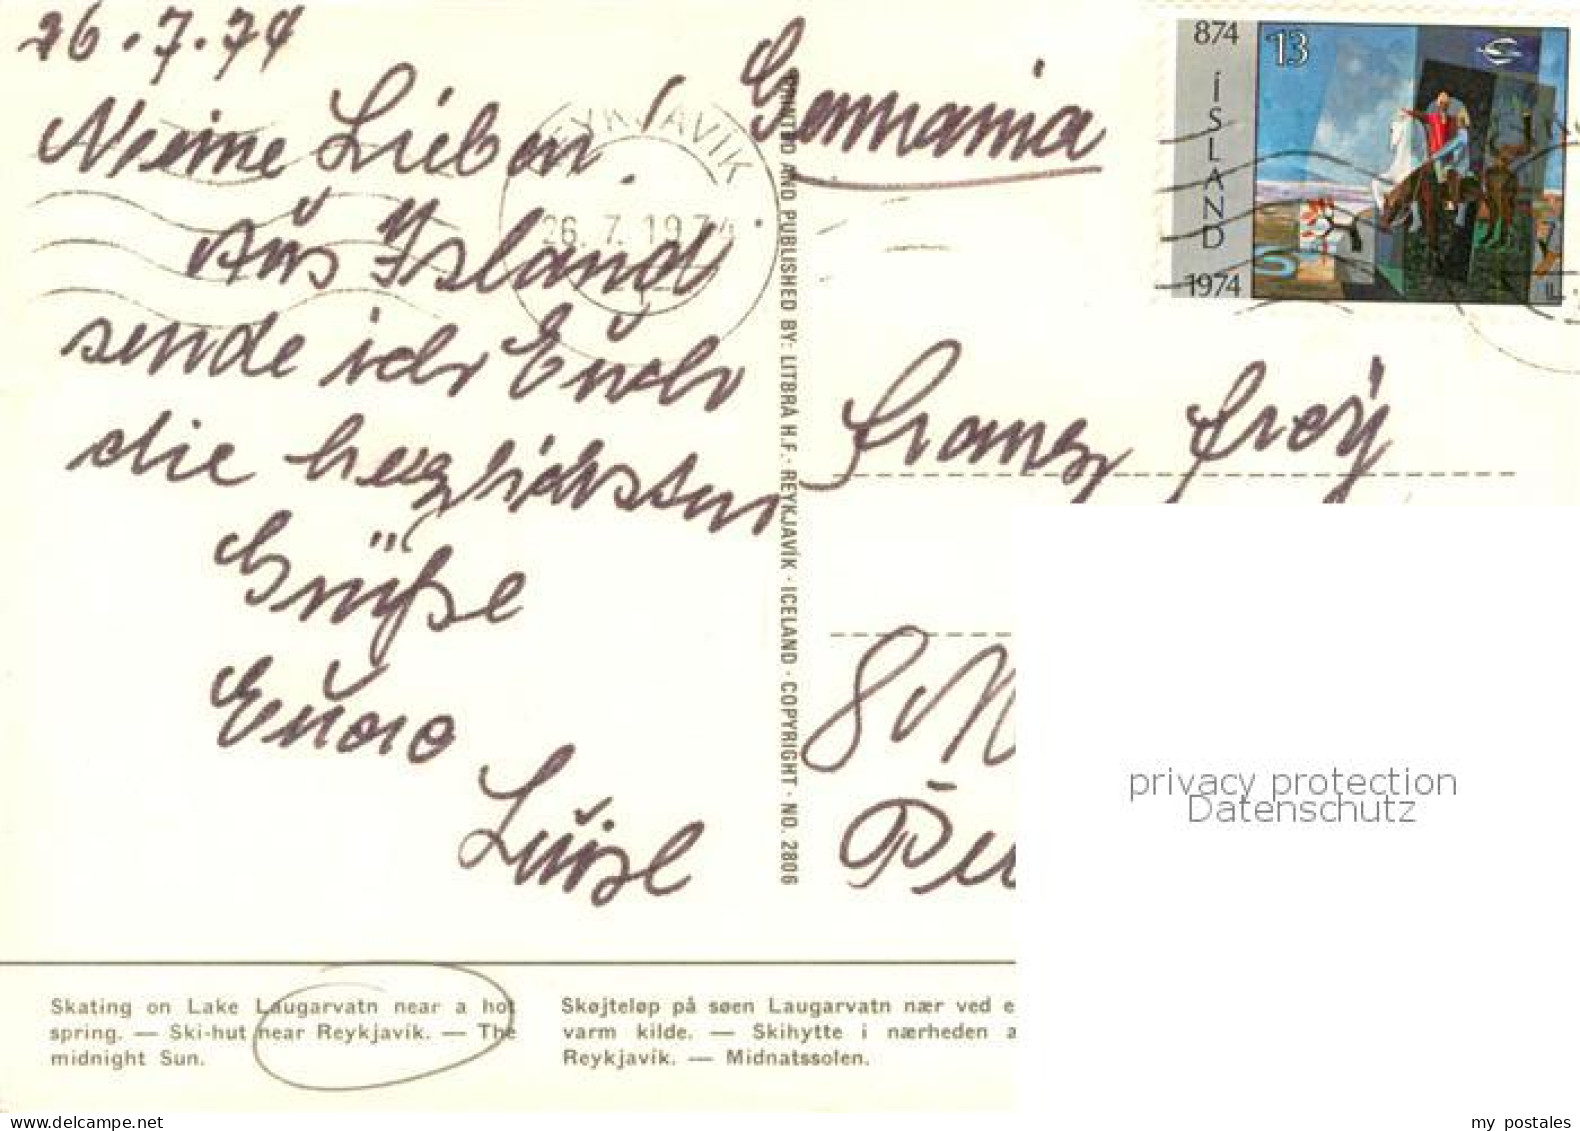 26.7.74
Meine Lieben!
Aus Island
sende ich Euch
die herzlichsten
Grüße
Eure
Luise
Germania
REYKJAVIK
26. 7. 1974
12
PRINTED AND PUBLISHED BY: LITBRÁ H.F. · REYKJAVÍK · ICELAND · COPYRIGHT · NO. 2806
874
13
ÍSLAND
1974
Franz Frey
8 M
privacy protection
Datenschutz
Skating on Lake Laugarvatn near a hot
spring. — Ski-hut near Reykjavík. — The
midnight Sun.
Skøjteløp på søen Laugarvatn nær ved e
varm kilde. — Skihytte i nærheden a
Reykjavík. — Midnatssolen.
my postales